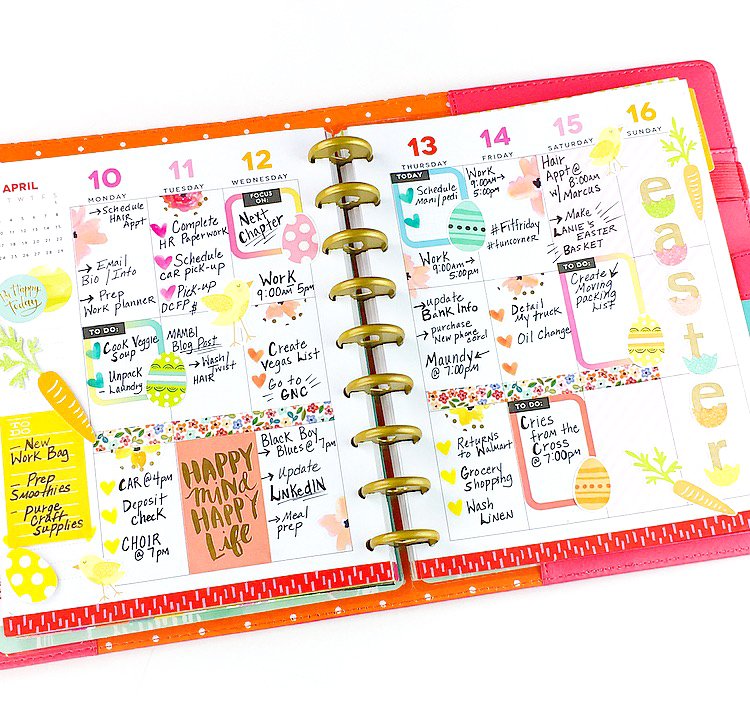 APRIL
Be Happy
Today
TODAY
- New
Work Bag
- Prep
Smoothies
- Purge
Craft
supplies
10
MONDAY
→ Schedule
HAIR
Appt
→ Email
Bio / Info
→ Prep
Work planner
TO DO:
Cook Veggie
Soup
Unpack
Laundry
CAR @ 4pm
Deposit
check
CHOIR
@ 7pm
11
TUESDAY
Complete
HR Paperwork
Schedule
CAR pick-up
Pick-up
DCFP $
MAMBI
Blog Post
→ Wash /
Twist
HAIR
HAPPY
MIND
HAPPY
Life
12
WEDNESDAY
FOCUS
ON:
Next
Chapter
Work
9:00am 5pm
Create
Vegas List
Go to
GNC
Black Boy
Blues @ 7pm
→ Update
LinkedIN
→ Meal
prep
13
THURSDAY
TODAY
Schedule
Mani/pedi
Work
9:00am → 5:00pm
→ update
Bank Info
→ Purchase
New phone cord
Maundy ←
@ 7:00pm
Returns
to Walmart
Grocery
shopping
Wash
LINEN
14
FRIDAY
Work
9:00am →
5:00pm
#Fitfriday
#funcorner
Detail
My truck
Oil Change
TO DO:
Cries
from the
Cross
@ 7:00pm
15
SATURDAY
Hair
Appt @
8:00am
w/ Marcus
→ Make
LANIE'S
EASTER
BASKET
TO DO:
Create
Moving
packing
LIST
16
SUNDAY
easter